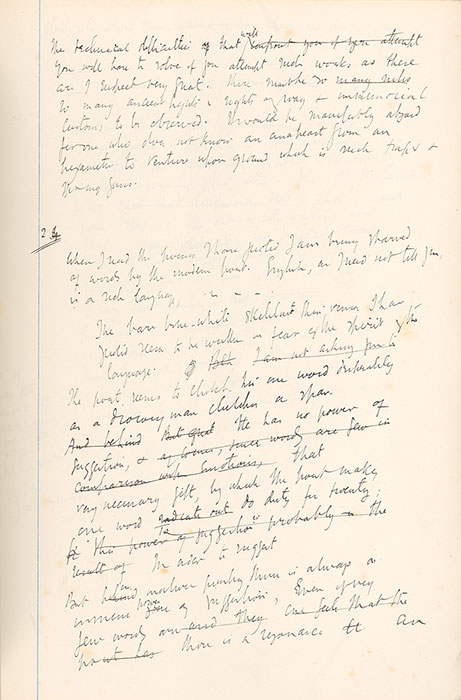 The technical difficulties of that will confront you if you attempt
you will have to solve if you attempt such work, as there
are I suspect very great. There must be so many rules
so many ancient rights & rights of way & immemorial
customs to be observed. It would be manifestly absurd
for one who does not know an anapaest from an
hexameter to venture upon ground which is such traps &
spring guns.
2
When I read the poems I have quoted I am being starved
of words by the modern poet. English, as I need not tell you,
is a rich language,
The bare bone-white skeletons these verses I have
quoted seem to be written in fear of the spirit of the
language. Both I am not asking for a
The poet seems to clutch his one word desperately
as a drowning man clutches a spar.
And behind But great He has no power of
suggestion, & of course, since words are few in
comparison with emotions, that
very necessary gift, by which the poet makes
one word radiate out do duty for twenty;
"The power of suggestion" probably in the
result of In order to suggest
But in modern poetry there is always a
immense power of suggestion. Even if very
few words are said they one feels that the
poet has there is a resonance an